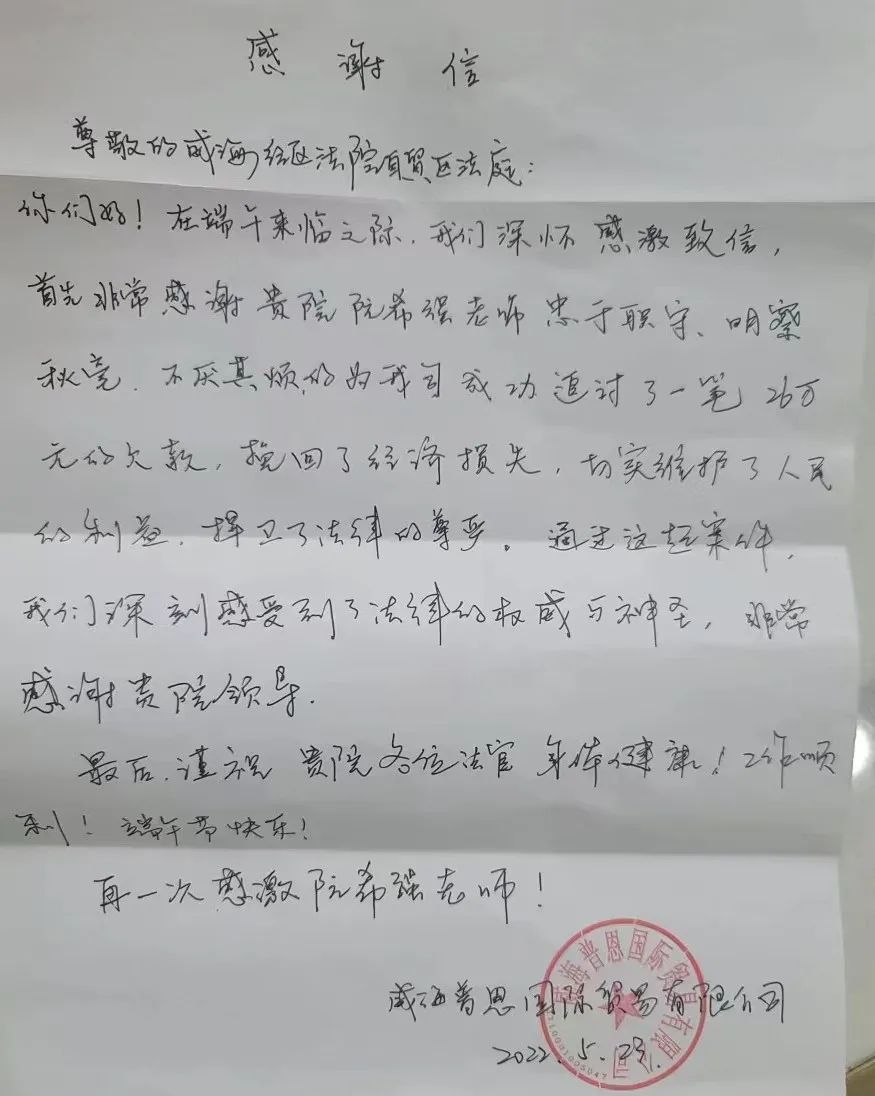 感谢信
尊敬的威海经区法院自贸区法庭：
你们好！在端午来临之际，我们深怀感激致信，
首先非常感谢贵院阮希强老师忠于职守、明察
秋毫，不厌其烦的为我司成功追讨了一笔26万
元的欠款，挽回了经济损失，切实维护了人民
的利益，捍卫了法律的尊严。通过这起案件，
我们深刻感受到了法律的权威与神圣，非常
感谢贵院领导.
最后，谨祝贵院各位法官身体健康！工作顺
利！端午节快乐！
再一次感激阮希强老师！
威海普恩国际贸易有限公司
2022.5.29.
威海普恩国际贸易有限公司